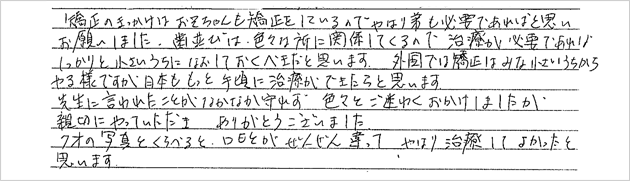 矯正のきっかけはお兄ちゃんも矯正をしているのでやはり弟も必要であればと思い
お願いしました。歯並びは色々な所に関係してくるので治療が必要であれば
しっかりと小さいうちになおしておくべきだと思います。外国では矯正はみな小さいうちから
やる様ですが日本ももっと手頃に治療ができたらと思います。
先生に言われたことがなかなか守れず色々とご迷わくおかけしましたが
親切にやっていただき ありがとうございました
7才の写真とくらべると、口もとがぜんぜん違って やはり治療してよかったと
思います。